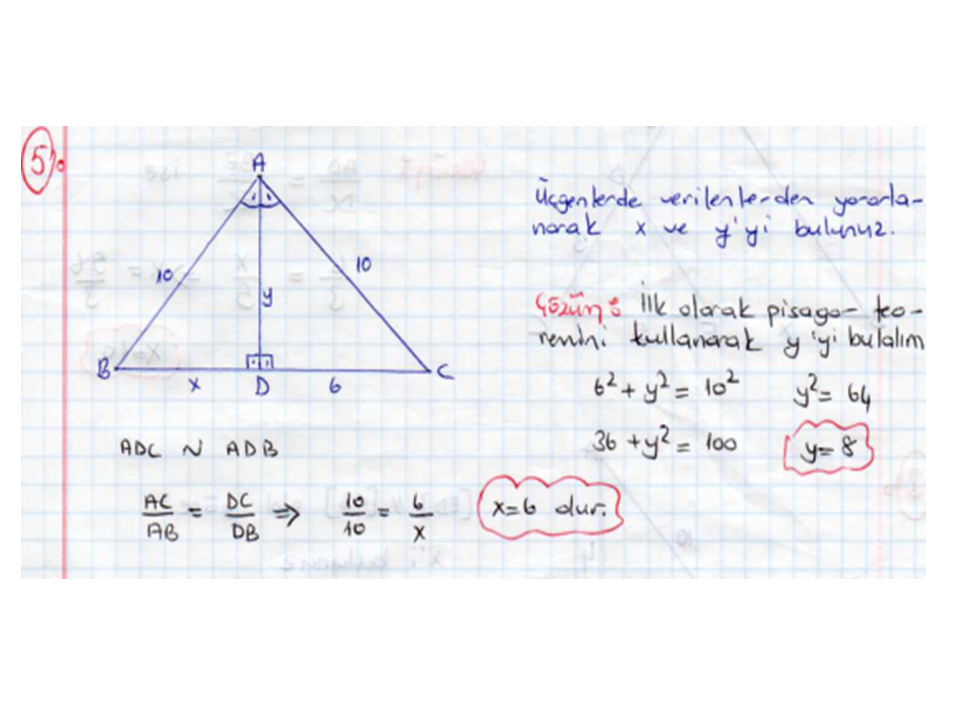 5.
A
10
10
y
B
x
D
6
C
Üçgenlerde verilenlerden yararla-
narak x ve y'yi bulunuz.
Çözüm: İlk olarak pisagor teo-
remini kullanarak y'yi bulalım
6² + y² = 10²
y² = 64
36 + y² = 100
y = 8
ADC ~ ADB
AC/AB = DC/DB ⇒ 10/10 = 6/x
x=6 dır.